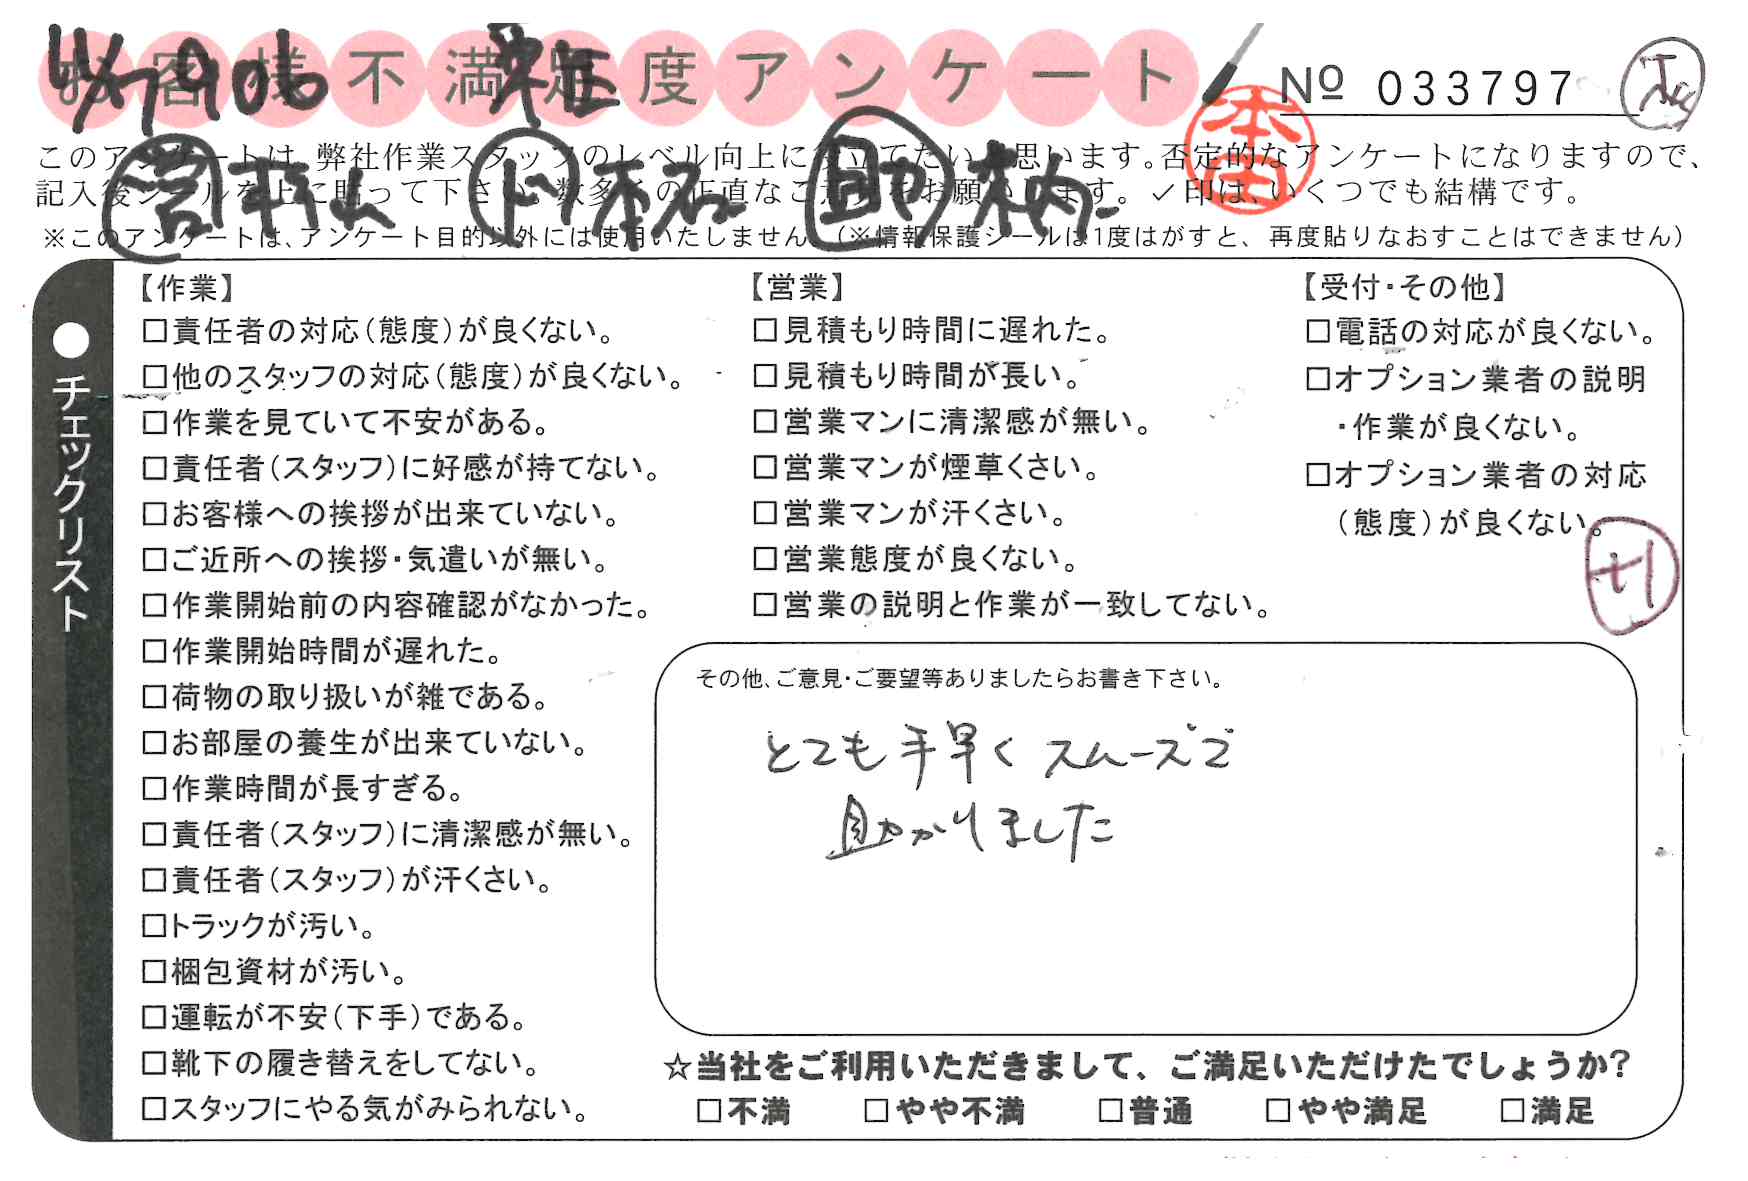 お客様不満足度アンケート
№ 033797
本田
このアンケートは、弊社作業スタッフのレベル向上に役立てたいと思います。否定的なアンケートになりますので、
記入後シールを上に貼って下さい。数多くの正直なご意見をお願いします。✓印は、いくつでも結構です。
※このアンケートは、アンケート目的以外には使用いたしません。（※情報保護シールは1度はがすと、再度貼りなおすことはできません）
●チェックリスト
【作業】
□責任者の対応（態度）が良くない。
□他のスタッフの対応（態度）が良くない。
□作業を見ていて不安がある。
□責任者（スタッフ）に好感が持てない。
□お客様への挨拶が出来ていない。
□ご近所への挨拶・気遣いが無い。
□作業開始前の内容確認がなかった。
□作業開始時間が遅れた。
□荷物の取り扱いが雑である。
□お部屋の養生が出来ていない。
□作業時間が長すぎる。
□責任者（スタッフ）に清潔感が無い。
□責任者（スタッフ）が汗くさい。
□トラックが汚い。
□梱包資材が汚い。
□運転が不安（下手）である。
□靴下の履き替えをしてない。
□スタッフにやる気がみられない。
【営業】
□見積もり時間に遅れた。
□見積もり時間が長い。
□営業マンに清潔感が無い。
□営業マンが煙草くさい。
□営業マンが汗くさい。
□営業態度が良くない。
□営業の説明と作業が一致してない。
【受付・その他】
□電話の対応が良くない。
□オプション業者の説明
・作業が良くない。
□オプション業者の対応
（態度）が良くない。
その他、ご意見・ご要望等ありましたらお書き下さい。
とても手早くスムーズで
助かりました
☆当社をご利用いただきまして、ご満足いただけたでしょうか?
□不満 □やや不満 □普通 □やや満足 □満足